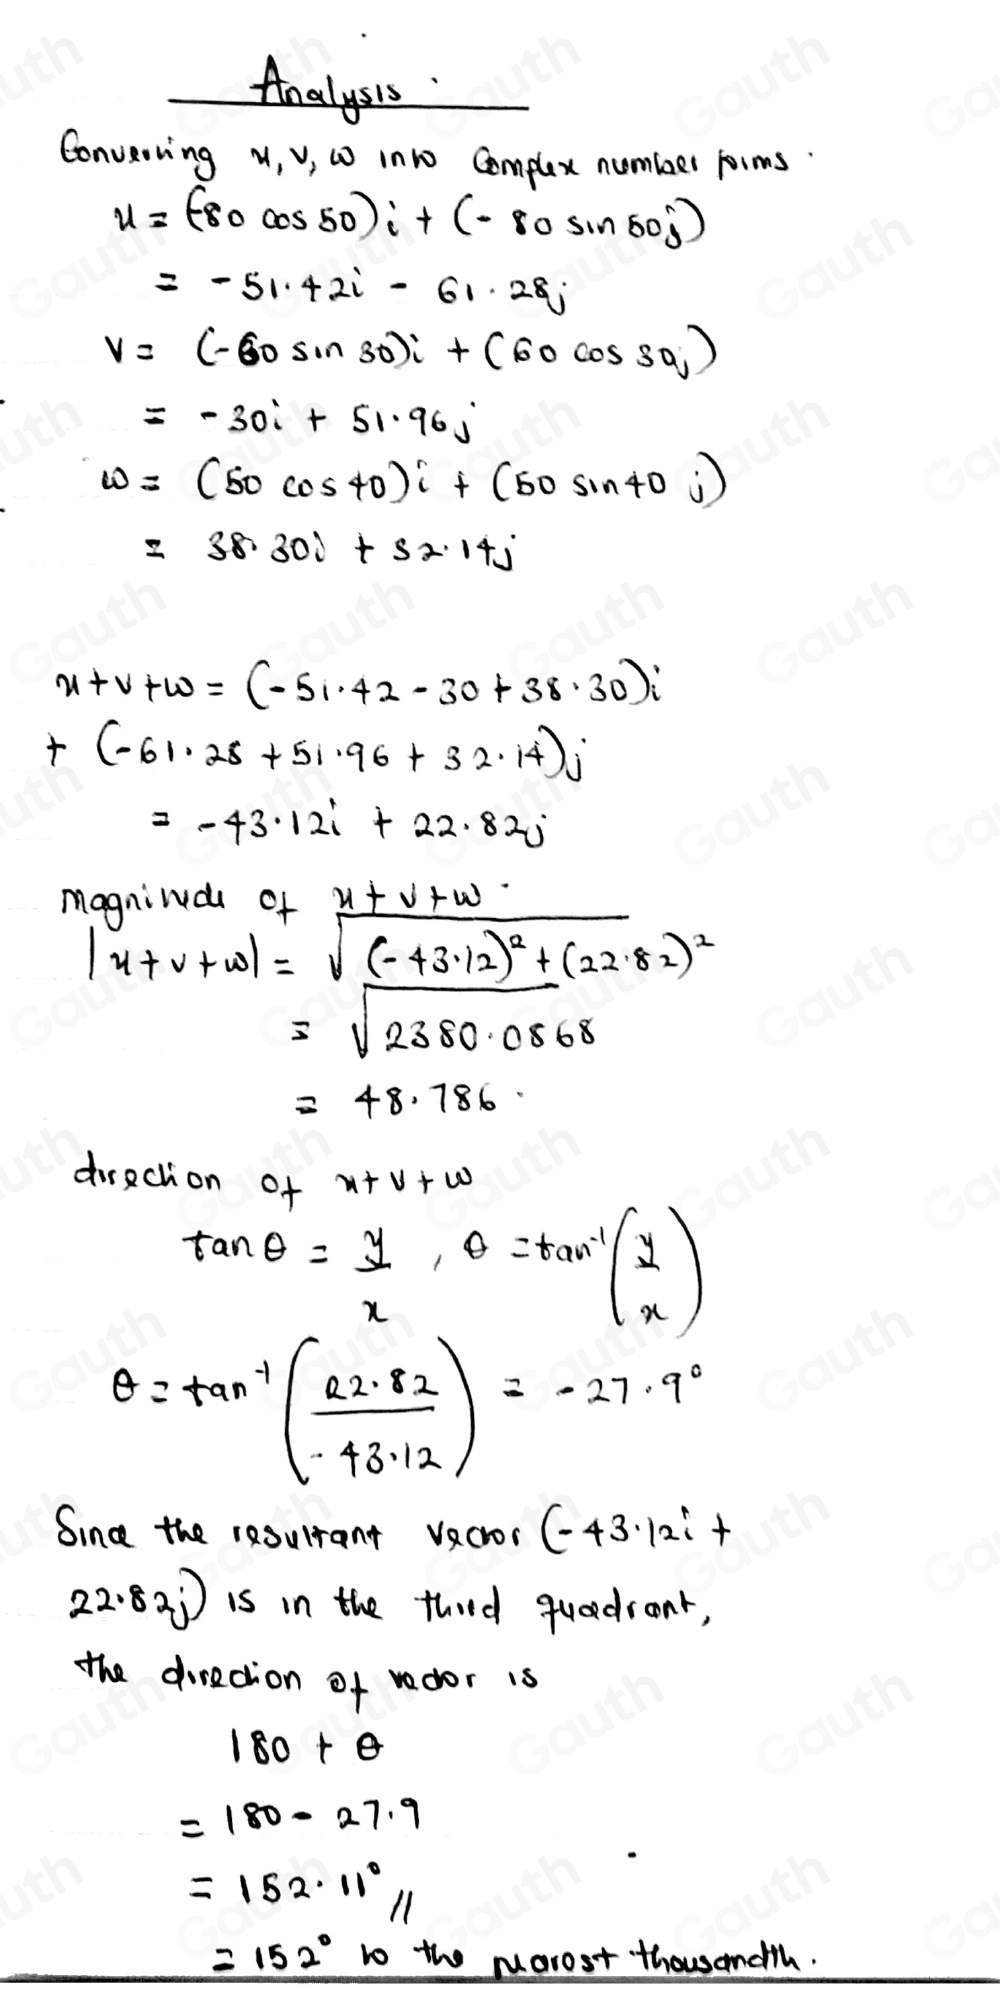 Analysis
Converting u, v, w into Complex number forms.
u = (-80 cos 50)i + (- 80 sin 50j)
= - 51.42i - 61.28j
v = (-60 sin 30)i + (60 cos 30j)
= - 30i + 51.96j
w = (50 cos 40)i + (50 sin 40 j)
= 38.30i + 32.14j
u + v + w = (-51.42 - 30 + 38.30)i
+ (-61.28 + 51.96 + 32.14)j
= -43.12i + 22.82j
magnitude of u + v + w.
|u + v + w| = √(-43.12)² + (22.82)²
= √2380.0868
= 48.786.
direction of u + v + w
tan θ = y/x , θ = tan⁻¹(y/x)
θ = tan⁻¹(22.82/-43.12) = -27.9°
Since the resultant vector (-43.12i +
22.82j) is in the third quadrant,
the direction of vector is
180 + θ
= 180 - 27.9
= 152.11° //
= 152° to the nearest thousandth.